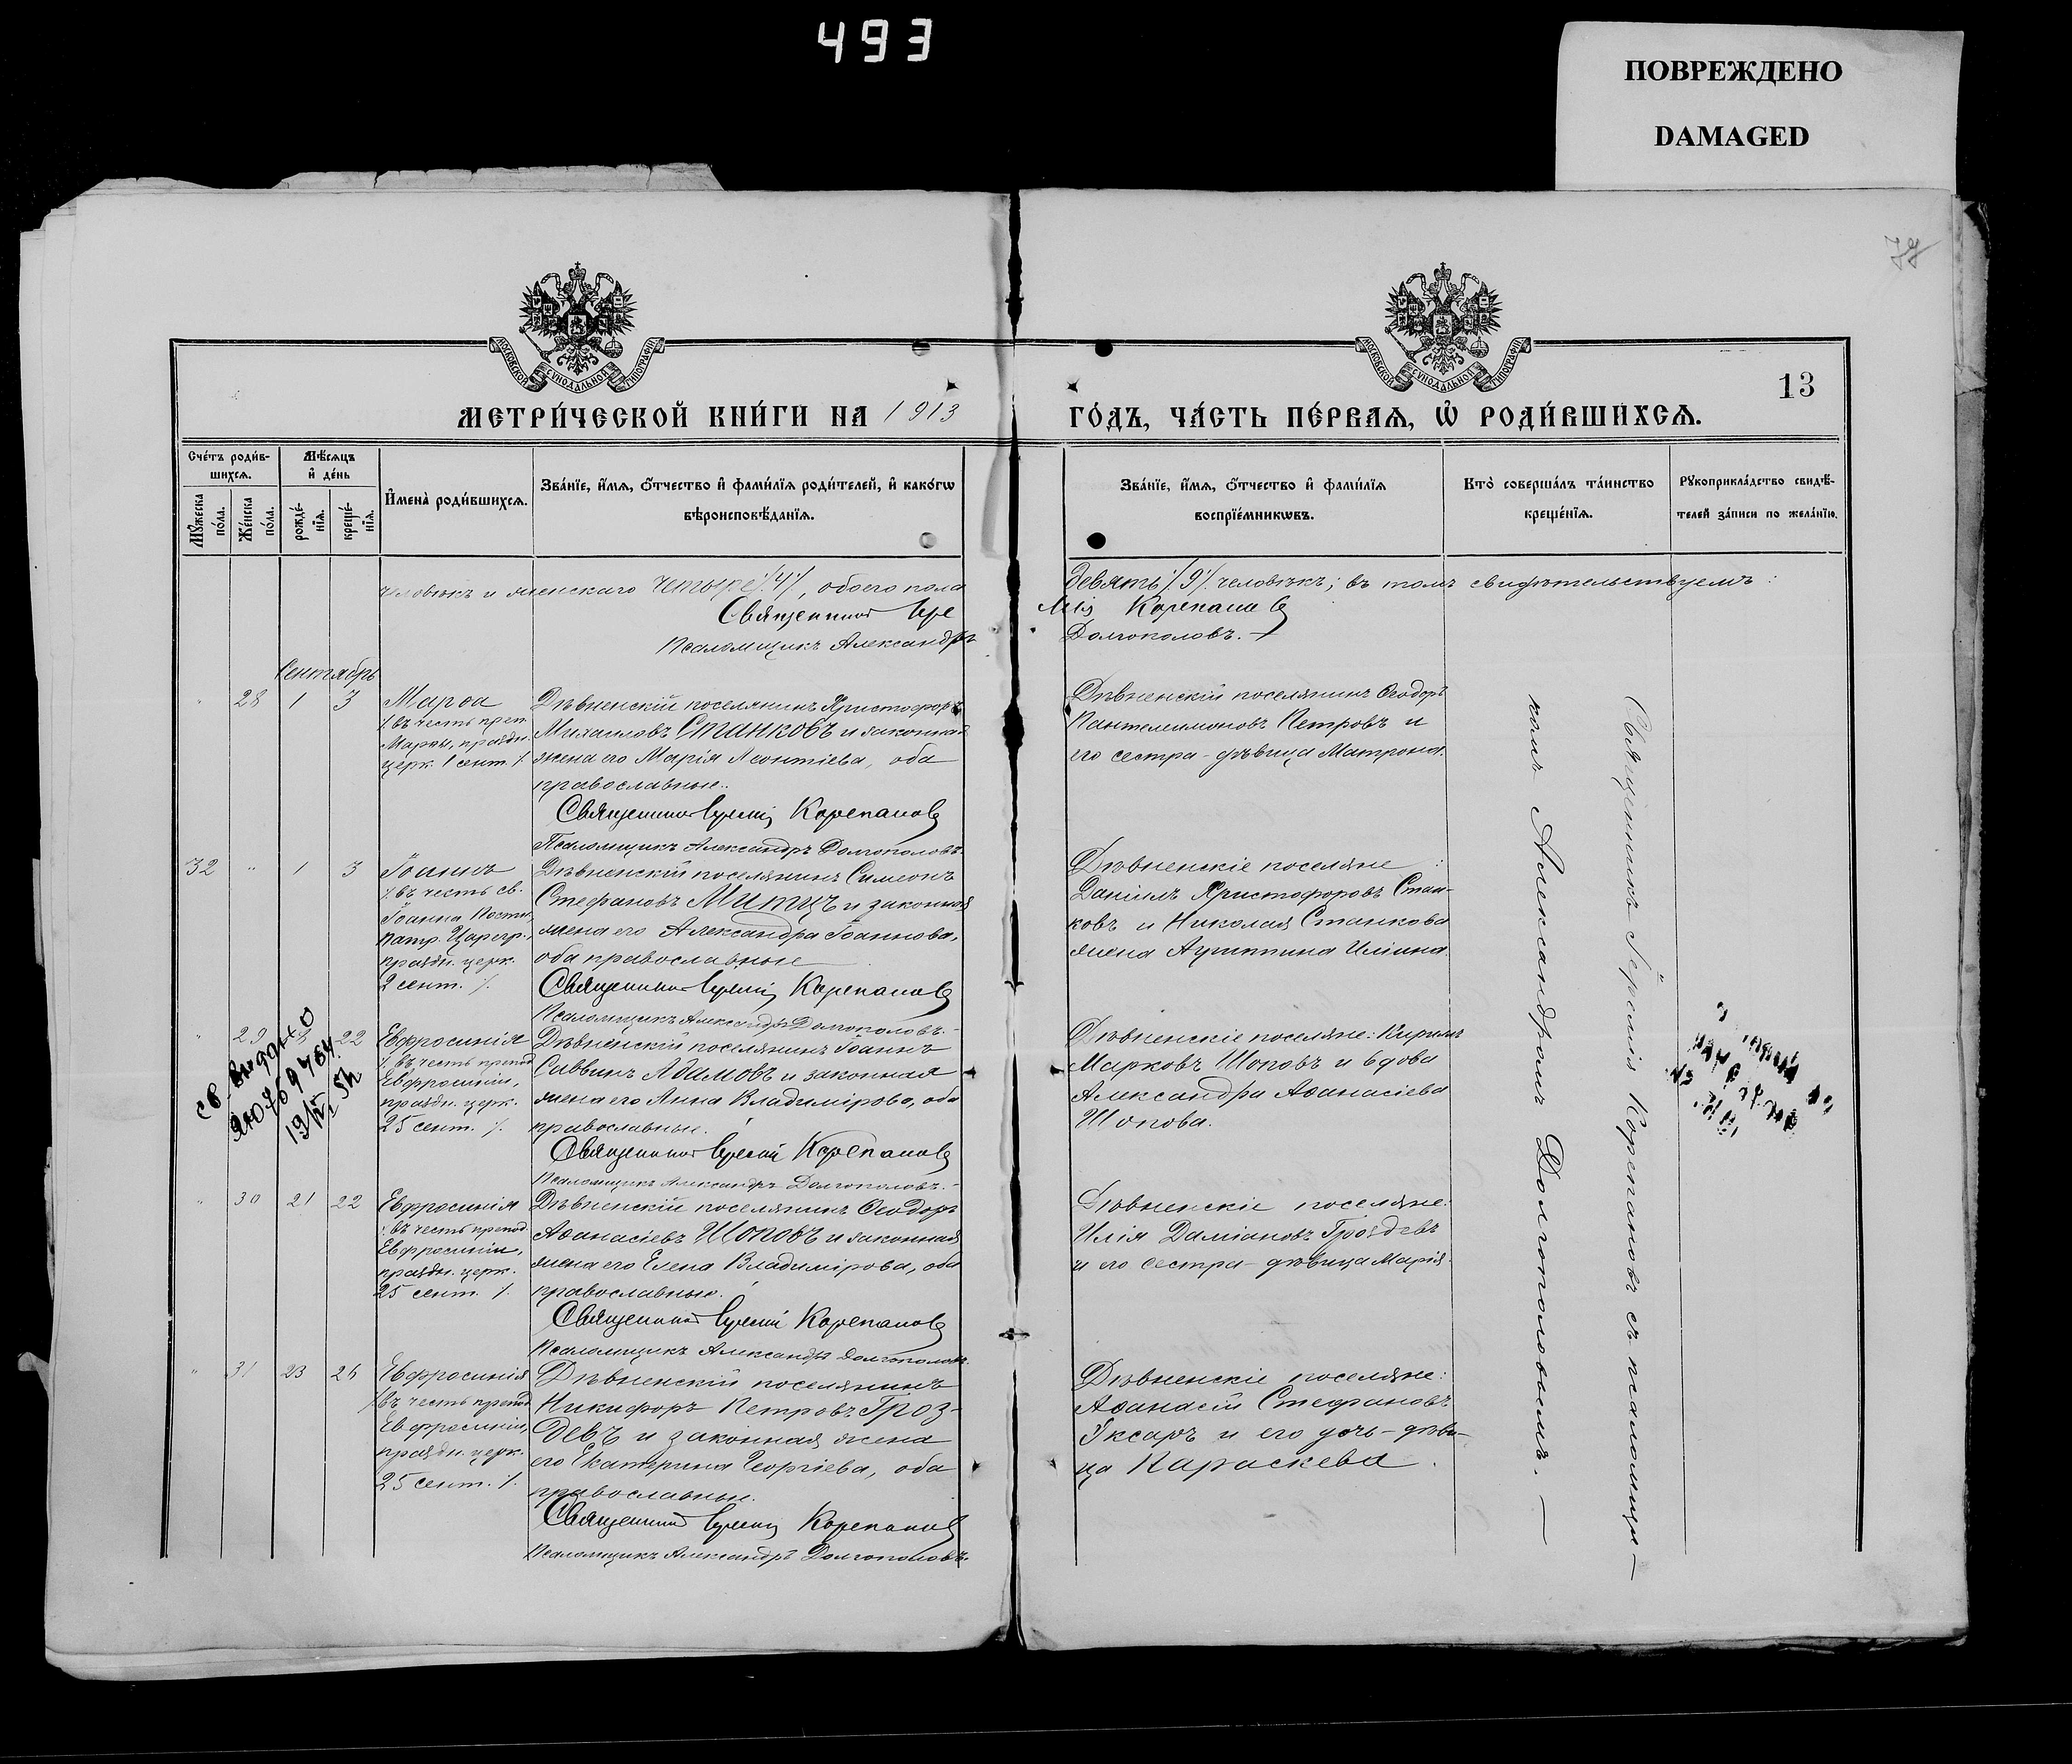 493
ПОВРЕЖДЕНО
DAMAGED
МОСКОВСКОЙ СѴНОДАЛЬНОЙ ТИПОГРАФІИ
МОСКОВСКОЙ СѴНОДАЛЬНОЙ ТИПОГРАФІИ
13
МЕТРИ́ЧЕСКОЙ КНИ́ГИ НА 1913
ГО́ДЪ, ЧА́СТЬ ПЕ́РВАЯ, Ѡ҆ РОДИ́ВШИХСЯ.
Сче́тъ роди́в-
шихся.
Мѣсяцъ
и҆ де́нь
Мꙋжеска
по́ла.
Же́нска
по́ла.
рожде́-
нїя.
креще́-
нїя.
И҆мена̀ роди́вшихся.
Зва́нїе, и҆́мя, ѻ҆́тчество и҆ фами́лїя роди́телей, и҆ како́гѡ
вѣроисповѣ́данїя.
Зва́нїе, и҆́мя, ѻ҆́тчество и҆ фами́лїя
воспрїе́мникѡвъ.
Кто̀ соверша́лъ та́инство
креще́нїя.
Рꙋкоприкла́дство свидѣ́-
телей за́писи по жела́нїю.
человѣкъ и женскаго четыре /4/, обоего пола
Священникъ Іере
Псаломщикъ Александръ
девять /9/ человѣкъ; въ томъ свидѣтельствуемъ:
мія Корепановъ
Долгополовъ.
Сентябрь
" 28 1 3
Марѳа
/. въ честь преп.
Марѳы, праздн.
церк. 1 сент. /.
Дѣвненскій поселянинъ Христофоръ
Михаиловъ Станковъ и законная
жена его Марія Леонтіева, оба
православные.
Священникъ Іеремія Корепановъ
Псаломщикъ Александръ Долгополовъ.
Дѣвненскій поселянинъ Ѳеодоръ
Пантелимоновъ Петровъ и
его сестра - дѣвица Матрона.
32 " 1 3
Іоаннъ
/. въ честь св.
Іоанна Постн.,
патр. Царегр.,
праздн. церк.
2 сент. /.
Дѣвненскій поселянинъ Симеонъ
Стефановъ Митицъ и законная
жена его Александра Іоаннова,
оба православные
Священникъ Іеремія Корепановъ
Псаломщикъ Александръ Долгополовъ.
Дѣвненскіе поселяне:
Даніилъ Христофоровъ Стан-
ковъ и Николая Станкова
жена Агриппина Иліина.
" 29 22
Евфросинія
/. въ честь препод.
Евфросиніи,
праздн. церк.
25 сент. /.
Дѣвненскій поселянинъ Іоаннъ
Саввинъ Адамовъ и законная
жена его Анна Владимірова, оба
православные.
Священникъ Іеремія Корепановъ
Псаломщикъ Александръ Долгополовъ.
Дѣвненскіе поселяне: Кириллъ
Марковъ Шоповъ и вдова
Александра Аѳанасіева
Шопова.
св. выдано
" 30 21 22
Евфросинія
/. въ честь препод.
Евфросиніи,
праздн. церк.
25 сент. /.
Дѣвненскій поселянинъ Ѳеодоръ
Аѳанасіевъ Шоповъ и законная
жена его Елена Владимірова, оба
православные.
Священникъ Іеремія Корепановъ
Псаломщикъ Александръ Долгополовъ.
Дѣвненскіе поселяне:
Илія Даміановъ Гроздевъ
и его сестра - дѣвица Марія.
" 31 23 26
Евфросинія
/. въ честь препод.
Евфросиніи,
праздн. церк.
25 сент. /.
Дѣвненскій поселянинъ
Никифоръ Петровъ Гроз-
девъ и законная жена
его Екатерина Георгіева, оба
православные.
Священникъ Іеремія Корепановъ
Псаломщикъ Александръ Долгополовъ.
Дѣвненскіе поселяне:
Аѳанасій Стефановъ
Уксаръ и его дочь - дѣви-
ца Параскева.
Священникъ Іеремія Корепановъ съ псаломщи-
комъ Александромъ Долгополовымъ. —